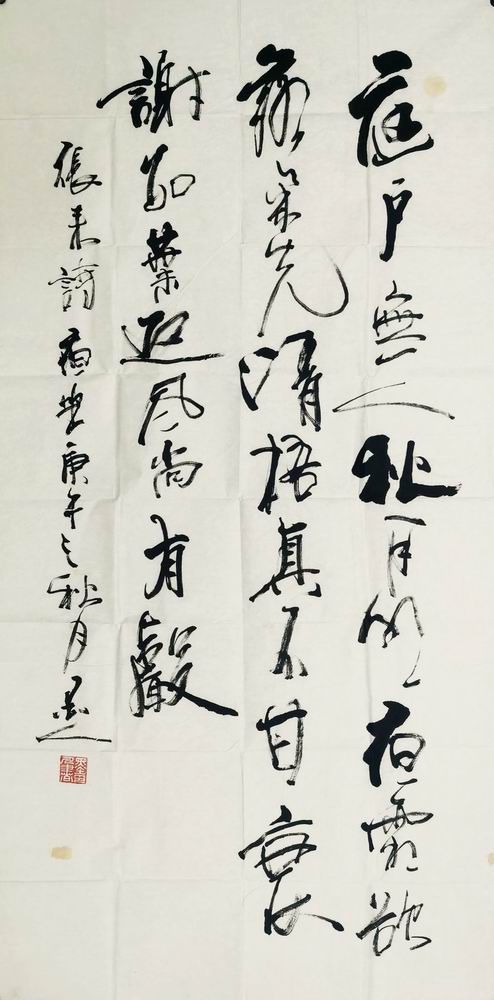 庭戶無人秋月明夜霜欲
落氣先清梧真不甘衰
謝數葉迎風尚有聲
張耒詩夜坐庚午之秋月